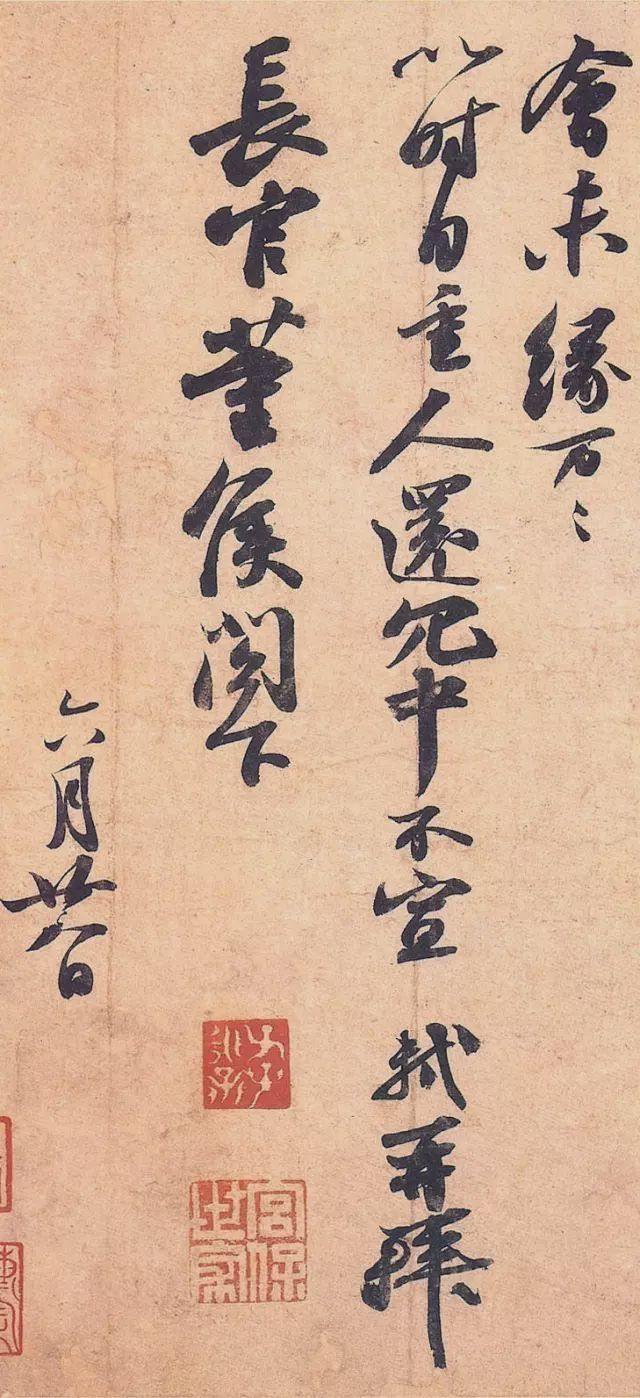 會未緣万〻
以时自重人還冗中不宣 軾再拜
長官董侯閣下
六月廿八日
宮保世家